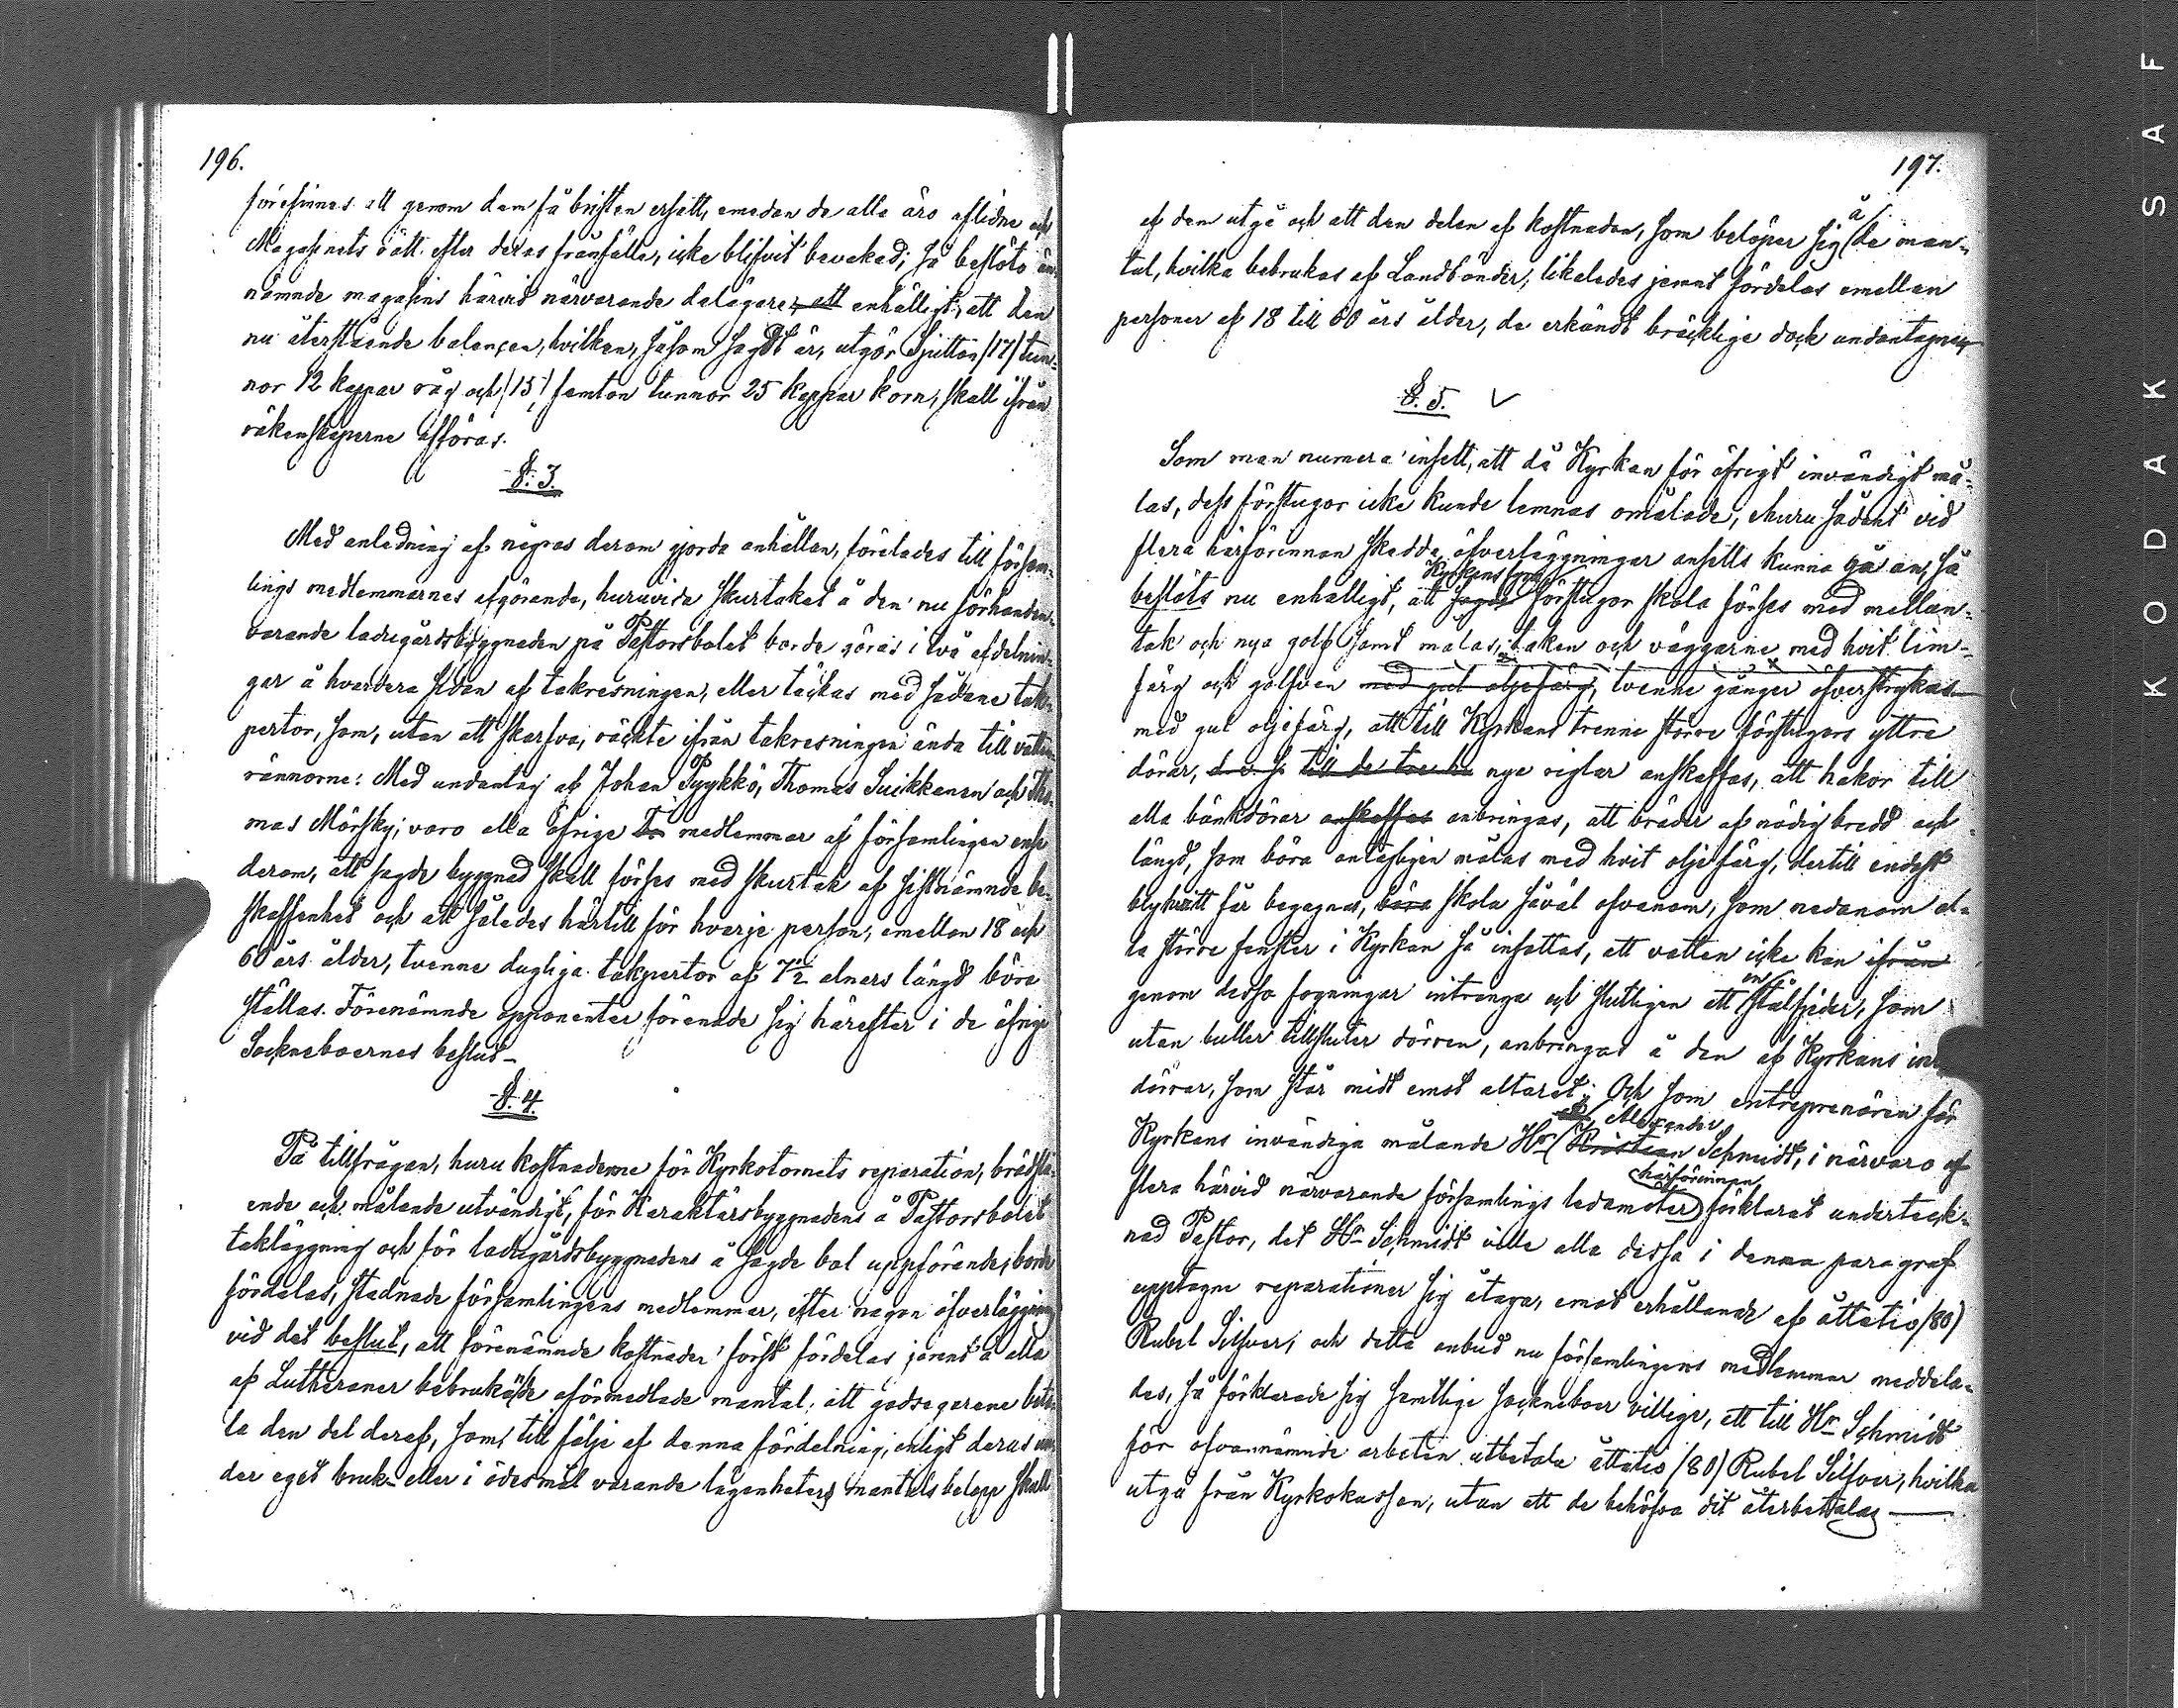 196.
förefinnes att genom dem få bristen ersatt, emedan de alla äro aflidne och
Magasinets rätt efter deras frånfälle, icke blifvit bevakad; så beslöto än-
nämnde magasins härvid närvarande delägare, att enhälligt, att den
nu återstående balancen, hvilken, såsom sagdt är, utgör Sjutton /17/ tun-
nor 12 kappar råg och /15/ femton tunnor 25 kappar korn, skall ifrån
räkenskaperne afföras.
§. 3.
Med anledning af någras derom gjorda anhållan, förelades till försam-
lings medlemmarnes afgörande, huruvida skurtaket å den nu förhanden-
varande ladugårdsbyggnaden på Pastorsbolet borde göras i två afdelnin-
gar å hvardera sidan af takresningen, eller täckas med sådane tak-
pertor, som, utan att skarfva, räckte ifrån takresningen ända till vatten-
rännorne: Med undantag af Johan Pyykkö, Thomas Suikkanen och Tho-
mas Mörsky, voro alla öfrige medlemmar af församlingen ense
derom, att sagde byggnad skall förses med skurtak af sistnämnde be-
skaffenhet och att således härtill för hvarje person, emellan 18 och
60 års ålder, tvenne dugliga takpertor af 7½ alnars längd böra
ställas. Förenämnde opponenter förenade sig härefter i de öfrige
Sockneboernes beslut.
§. 4.
På tillfrågan, huru kostnaderne för Kyrkotornets reparation, brädslå-
ende och målande utvändigt, för Karaktärsbyggnadens å Pastorsbolet
takläggning och för ladugårdsbyggnadens å sagde bol uppförande, borde
fördelas, stadnade församlingens medlemmar, efter någon öfverläggning
vid det beslut, att förenämnde kostnader först fördelas jemnt å alla
af Lutheraner bebrukade oförmedlade mantal; att godsegarene beta-
la den del deraf, som, till följe af denna fördelning, enligt deras un-
der eget bruk eller i ödesmål varande lägenheters mantals belopp skall
197.
af dem utgå och att den delen af kostnaden, som belöper sig å de man-
tal, hvilka bebrukas af Landbönder, likaledes jemnt fördelas emellan
personer af 18 till 60 års ålder, de erkändt bräcklige dock undantagna
§. 5. √
Som man numera insett, att då Kyrkan för öfrigt invändigt må-
las, dess förstugor icke kunde lemnas omålade, ehuru sådant vid
flera härförinnan skedda öfverläggningar ansetts kunna gå an, så
beslöts nu enhälligt, att Kyrkans förstugor skola förses med mellan-
tak och nya golf samt målas; taken och väggarne med hvit lim-
färg och golfven med gul oljefärg, tvenne gånger öfverstrykas
med gul oljefärg, att till Kyrkans trenne större förstugors yttre
dörar, nya riglar anskaffas, att hakor till
alla bänkdörar anskaffas anbringas, att bräder af nödig bredd och
längd, som böra antagligen målas med hvit oljefärg, dertill endast
blyhvitt får begagnas, böra skola såväl ofvanom, som nedanom al-
la större fenster i Kyrkan så insettas, att vatten icke kan ifrån
genom dessa fogningar intränga och slutligen att en stålfjäder, som
utan buller tillsluter dörren, anbringas å den af Kyrkans
dörrar, som står midt emot altaret. Och som entreprenören för
Kyrkans invändiga målande Hr Alexander Kristian Schmidt, i närvaro af
flera härvid närvarande församlings ledamöter härförinnan förklarat underteck-
nad Pastor, det Hr Schmidt ville alla dessa i denna paragraf
upptagne reparationer sig åtaga, emot erhållande af åttatio /80/
Rubel Silfver, och detta anbud nu församlingens medlemmar meddela-
des, så förklarade sig samtlige sockneboer villige, att till Hr Schmidt
för ofvannämnde arbeten utbetala åttatio /80/ Rubel Silfver, hvilka
utgå från Kyrkokassan, utan att de behöfva dit återbetalas
KODAK SAF